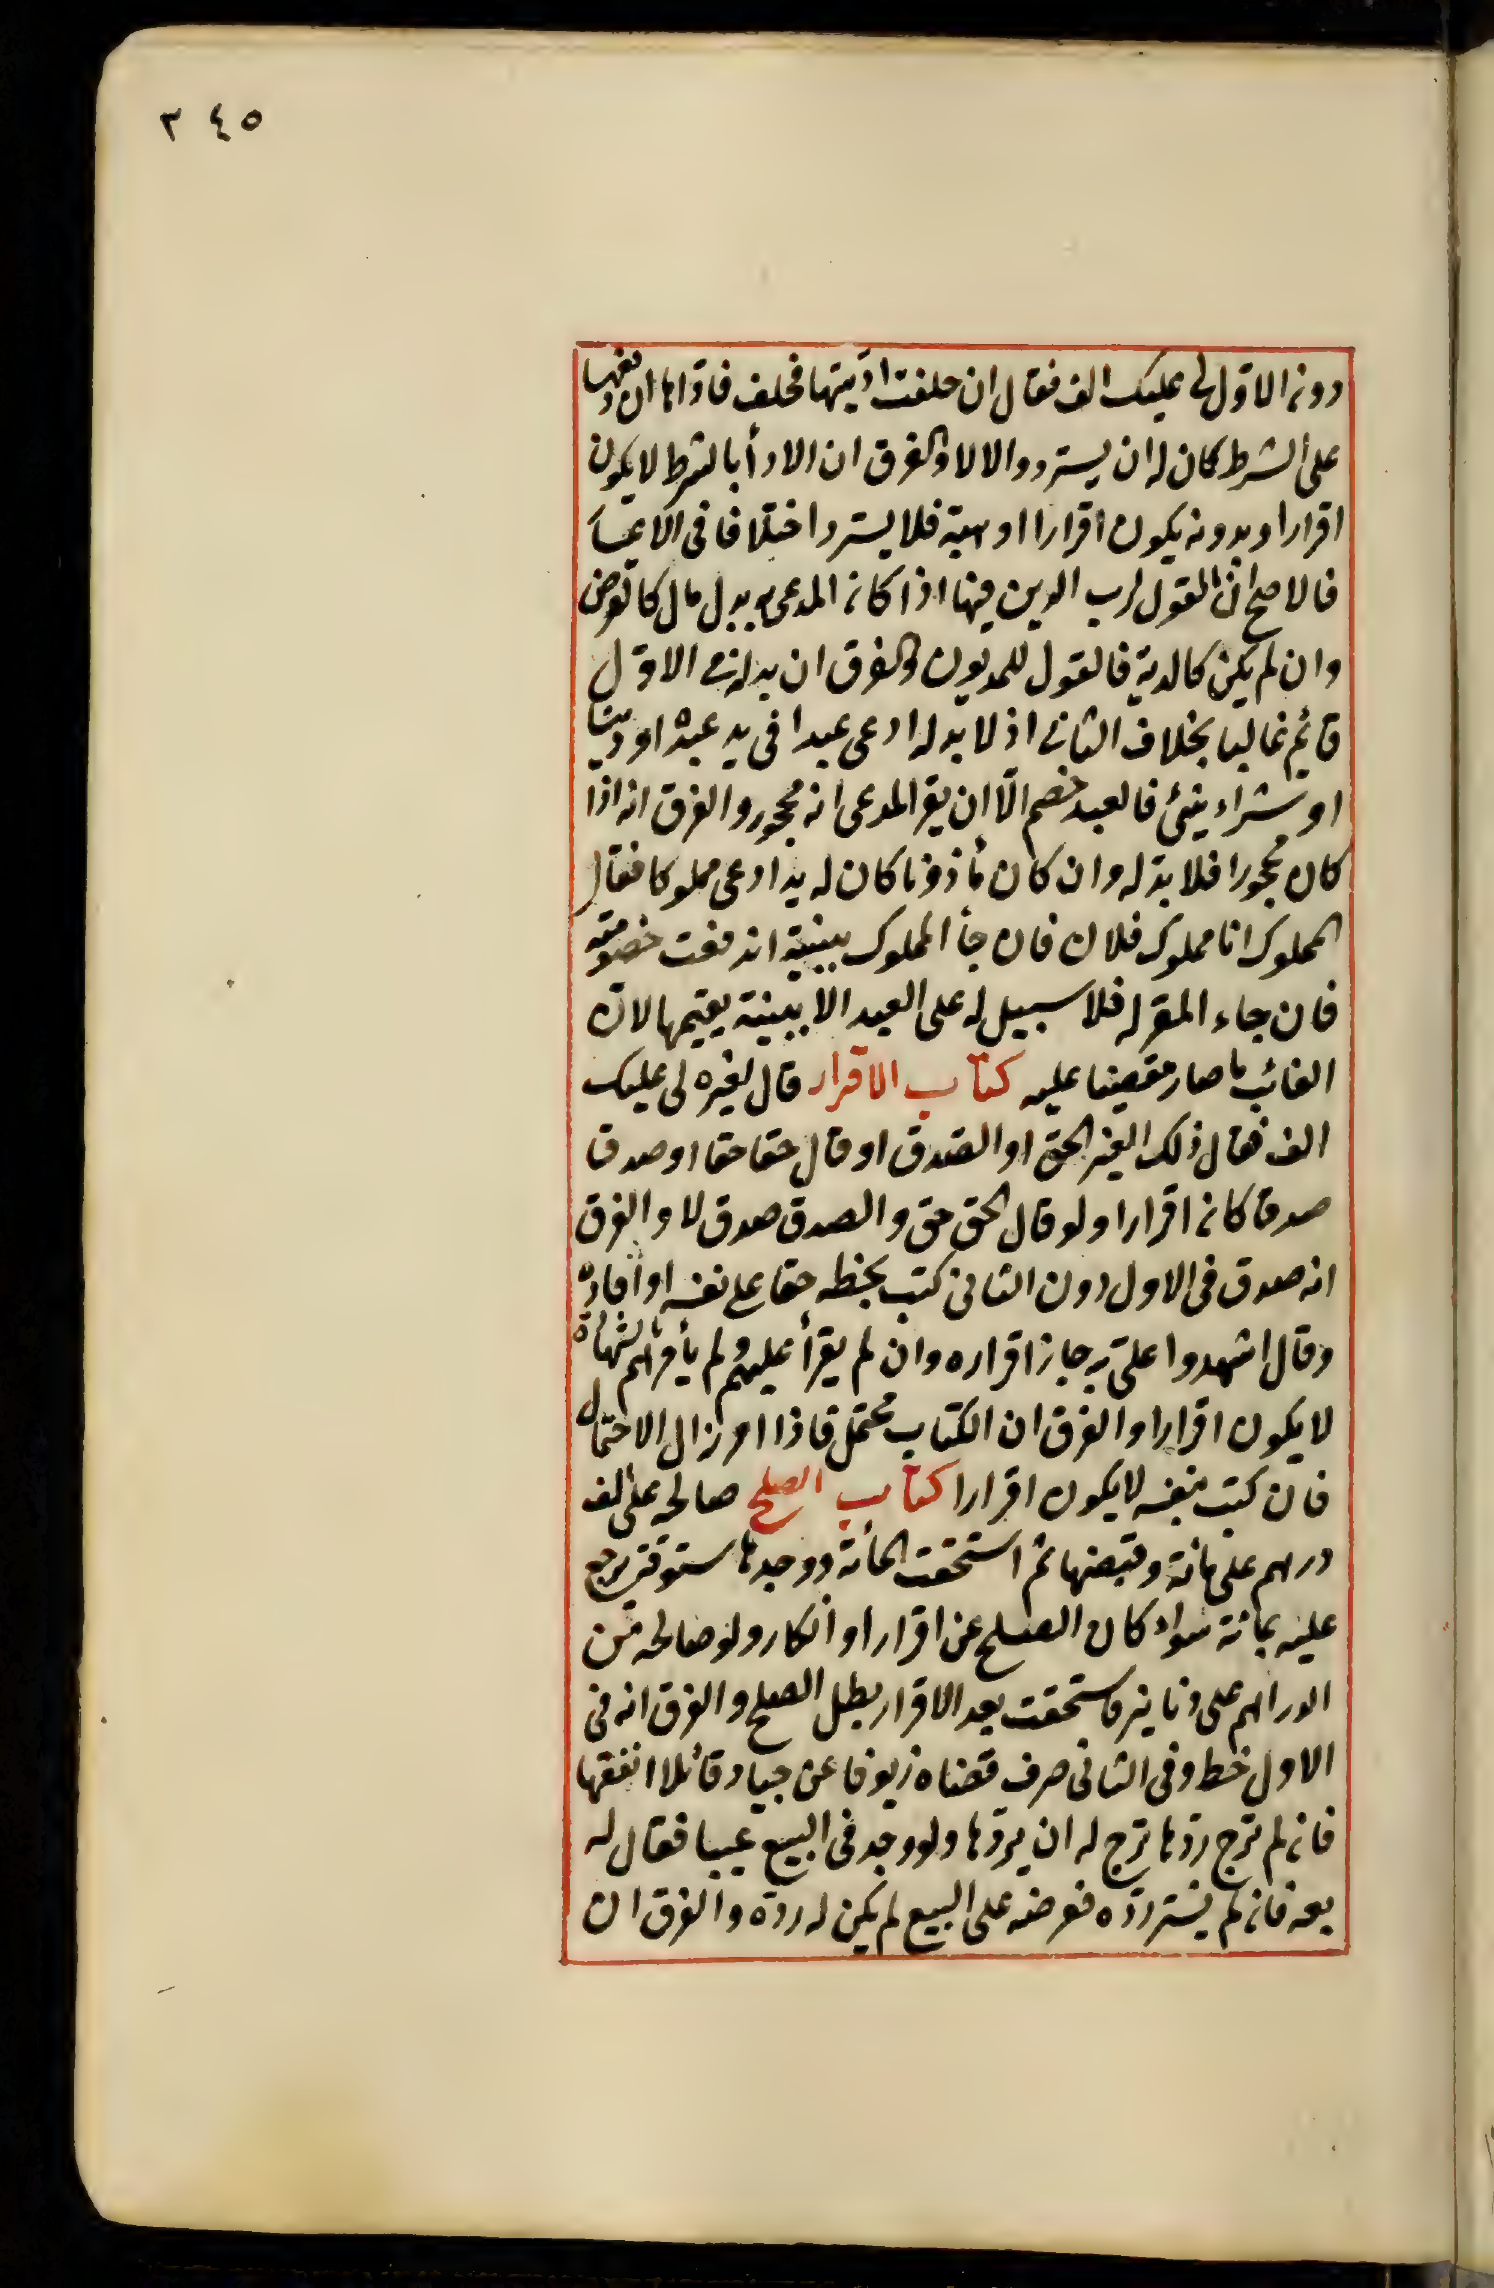 ٣٤٥
دون الاول لى عليك الف فقال ان حلفت اديتها فحلف فاداها ان دفعها
على الشرط كان له ان يسترد والا لا والفرق ان الادأ بالشرط لا يكون
اقرارا وبدونه يكون اقرارا او هبة فلا يسترد اختلفا فى الاعسا
فالاصح ان القول لرب الدين فيما اذا كان المدعى به بدل مال كالقرض
وان لم يكن كالدية فالقول للمديون والفرق ان بدله فى الاول
قائم غالبا بخلاف الثانى اذ لا بدله ادعى عبدا فى يد عبد او دينا
او شراء شئ فالعبد خصم الا ان يقر المدعى انه محجور والفرق انه اذا
كان محجورا فلا يد له وان كان مأذونا كان له يد ادعى مملوكا فقال
المملوك انا مملوك فلان فان جأ المملوك ببينة اندفعت خصومته
فان جاء المقر له فلا سبيل له على العبد الا ببينة يقيمها لان
الغائب ما صار مقضيا عليه كتاب الاقرار قال لغيره لى عليك
الف فقال ذلك الغير الحق او الصدق او قال حقا حقا او صدقا
صدقا كان اقرارا ولو قال الحق حق والصدق صدق لا والفرق
انه صدق فى الاول دون الثانى كتب بخطه حقا على نفسه او
وقال اشهدوا على به جاز اقراره وان لم يقرأ عليهم ولم يأمرهم بالشهادة
لا يكون اقرارا والفرق ان الكتاب محتمل فاذا امر زال الاحتمال
فان كتب بنفسه لا يكون اقرارا كتاب الصلح صالحه على الف
درهم على مائة وقبضها ثم استحقت المائة ووجدها ستوقة يرجع
عليه بمائة سواء كان الصلح عن اقرار او انكار ولو صالحه من
الدراهم على دنانير فاستحقت بعد الاقرار بطل الصلح والفرق انه فى
الاول خط وفى الثانى صرف قضاه زيوفا عن جياد قائلا انفقها
فان لم ترج ردها ترج له ان يردها ولو وجد فى البيع عيبا فقال له
بعه فان لم يشتر رده فعرضه على البيع لم يكن له رده والفرق ان